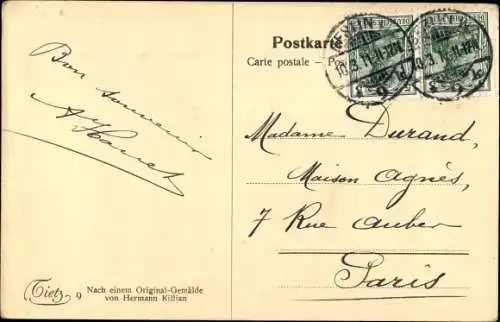 Bon souvenir
Postkarte
Carte postale –
BERLIN
10.3.11.11-12V.
Madame Durand,
Maison Agnès,
7 Rue Auber
Paris
Tietz 9
Nach einem Original-Gemälde
von Hermann Killian